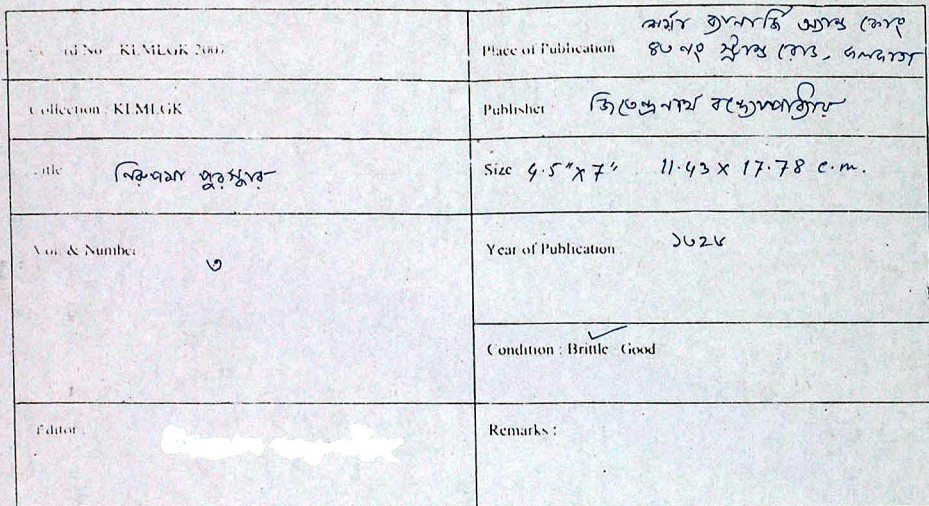 Record No KLMLGK 2007
Place of Publication
শর্মা ব্যানার্জি অ্যান্ড কোং
৪৩ নং স্ট্রান্ড রোড, কলকাতা
Collection : KLMLGK
Publisher : জিতেন্দ্রনাথ বন্দ্যোপাধ্যায়
Title নিরুপমা পুরস্কার
Size 4.5" x 7" 11.43 x 17.78 c.m.
Vol. & Number : ৩
Year of Publication : ১৩২৫
Condition : Brittle Good
Editor :
Remarks :